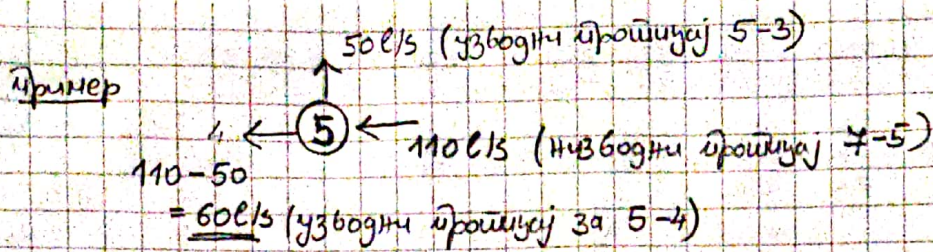 50l/s (узводни протицај 5-3)
пример
4 5 110l/s (низводни протицај 7-5)
110-50
= 60l/s (узводни протицај за 5-4)